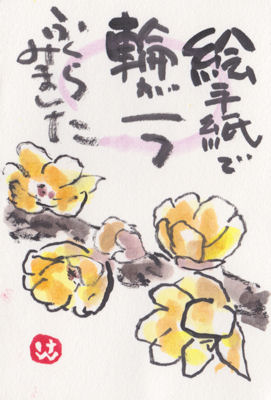 絵手紙で
輪が一つ
ふくらみました